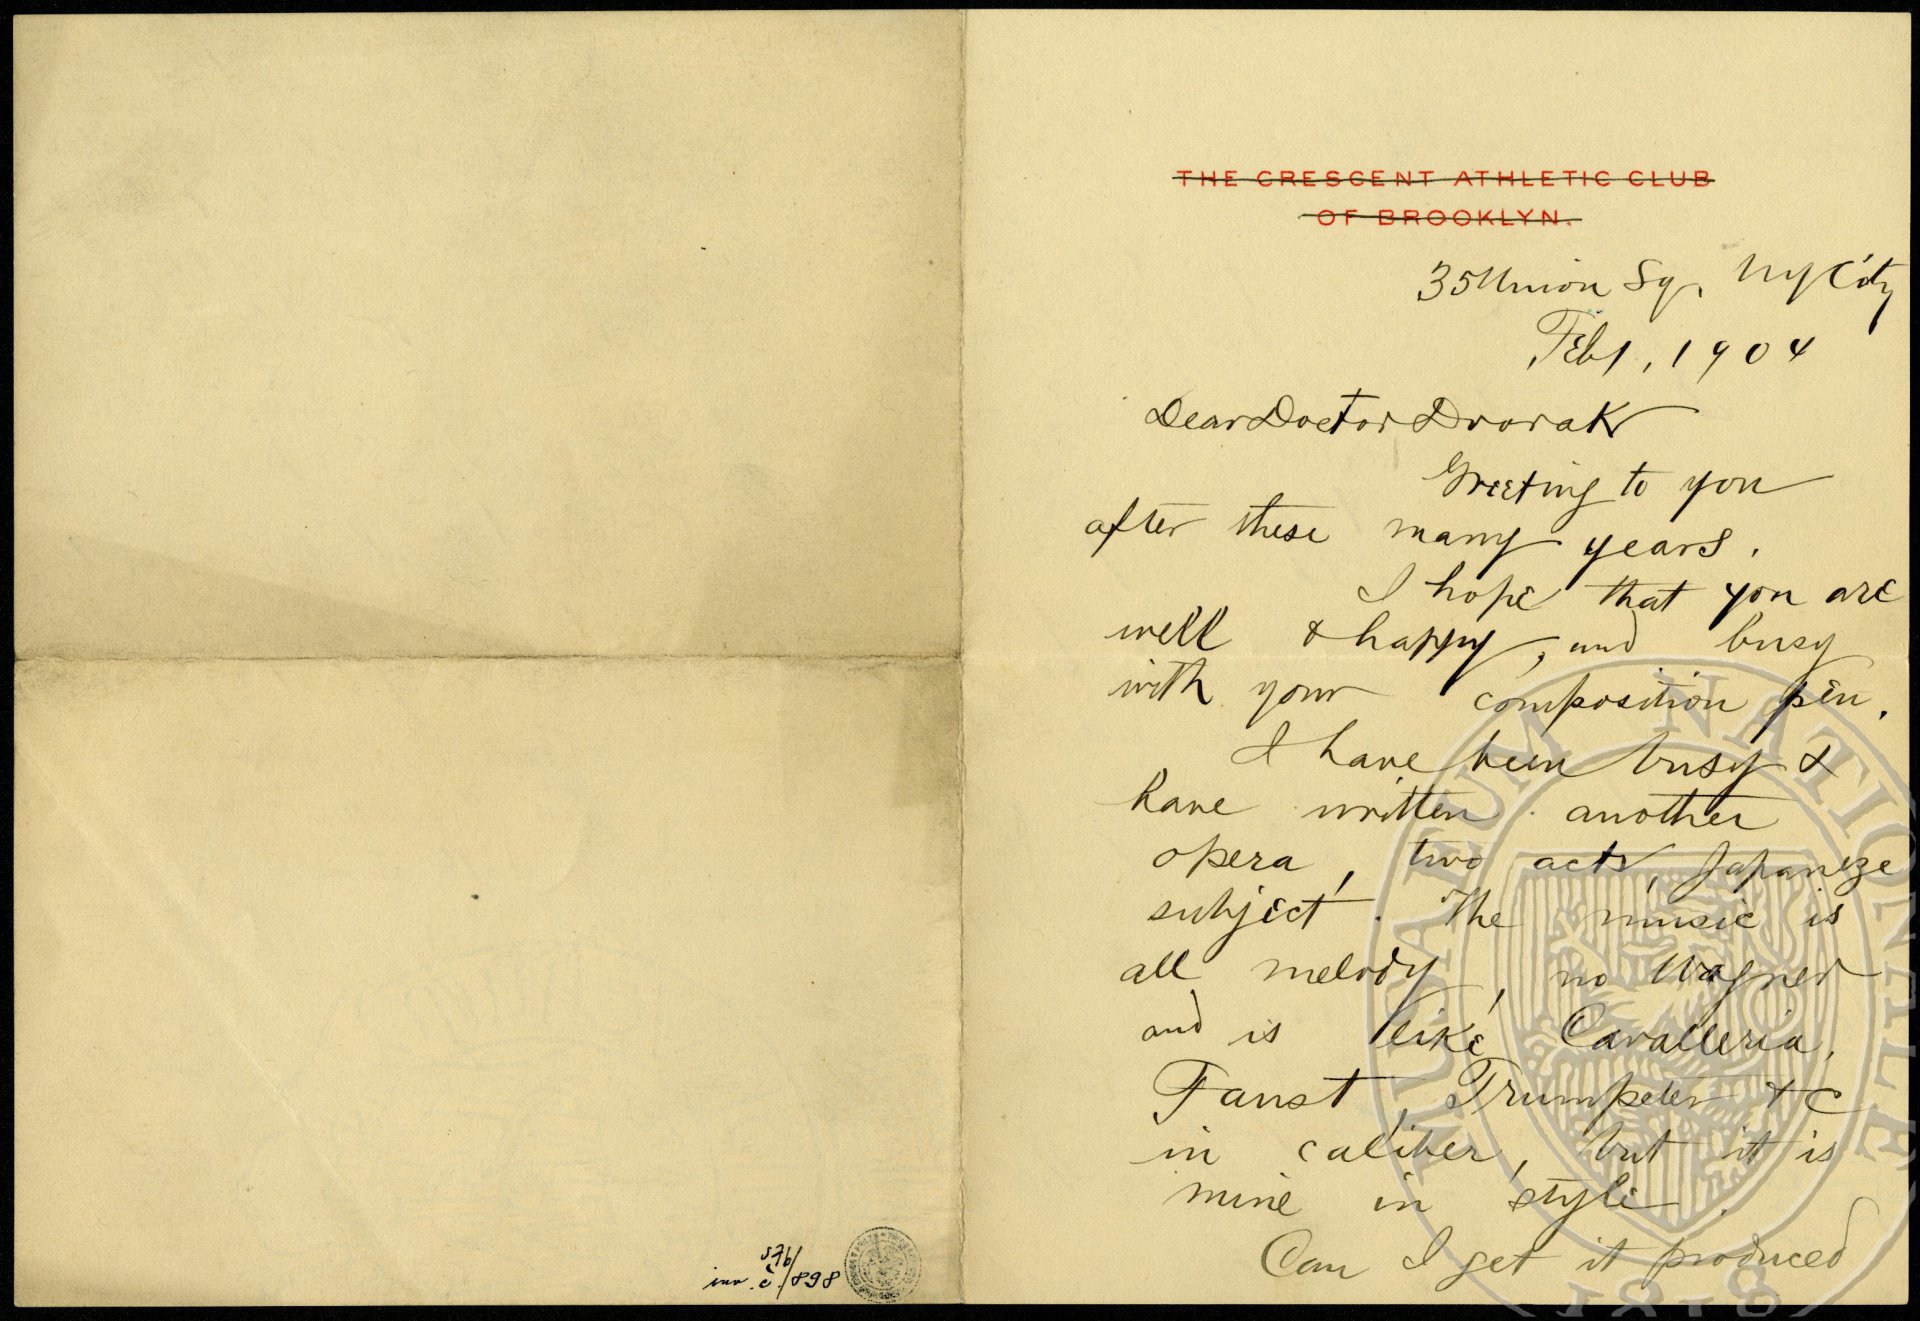 THE CRESCENT ATHLETIC CLUB
OF BROOKLYN.
35 Union Sq, NY City
Feb 1, 1904
Dear Doctor Dvorak
Greeting to you
after these many years.
I hope that you are
well & happy, and busy
with your composition pen.
I have been busy &
have written another
opera, two acts, Japaneze
subject. The music is
all melody, no Wagner
and is like Cavalleria,
Faust, Trumpeter &c
in caliber, but it is
mine in style.
Can I get it produced
576/
inv. č./898
MUSAEUM NATIONALE
1818